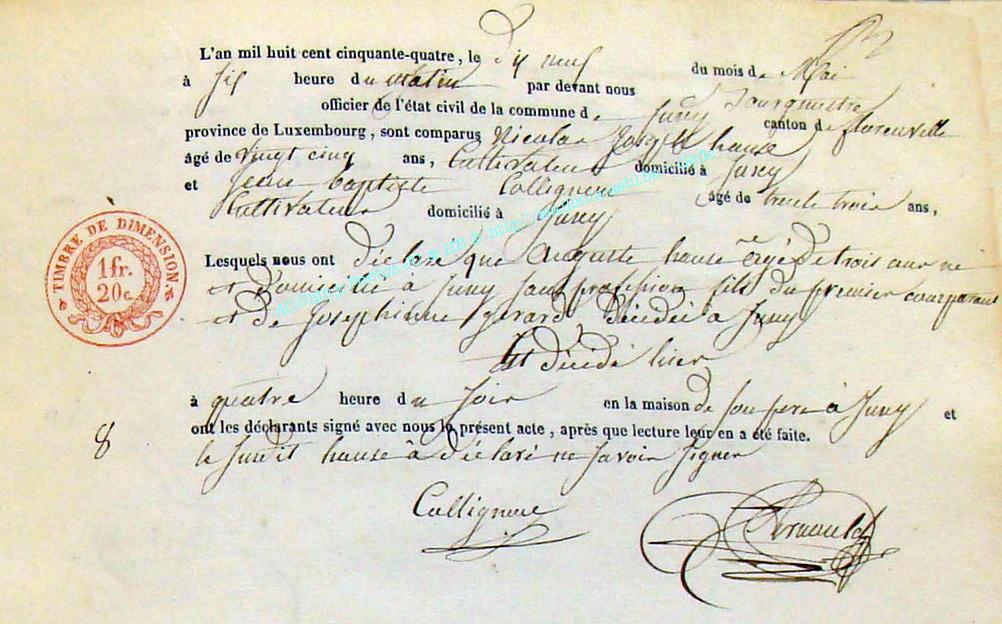 L'an mil huit cent cinquante-quatre, le Dix neuf du mois de Mai
à six heure du matin par devant nous Bourgmestre
officier de l'état civil de la commune de Juny canton de florenville
province de Luxembourg, sont comparus Nicolas Joseph hause
âgé de vingt cinq ans, Cultivateur domicilié à Juny
et Jean baptiste Collignon âgé de trente trois ans,
Cultivateur domicilié à Juny
Lesquels nous ont déclaré que Auguste hause âgé de trois ans né
et domicilié à Juny sans profession fils du premier comparant
et de Josephinne gerard décédée à Juny
Est décédé hier
à quatre heure du soir en la maison de son pere à Juny et
ont les déclarants signé avec nous le présent acte, après que lecture leur en a été faite.
le susdit hause à déclaré ne savoir signer
8
TIMBRE DE DIMENSION
1 fr.
20 c.